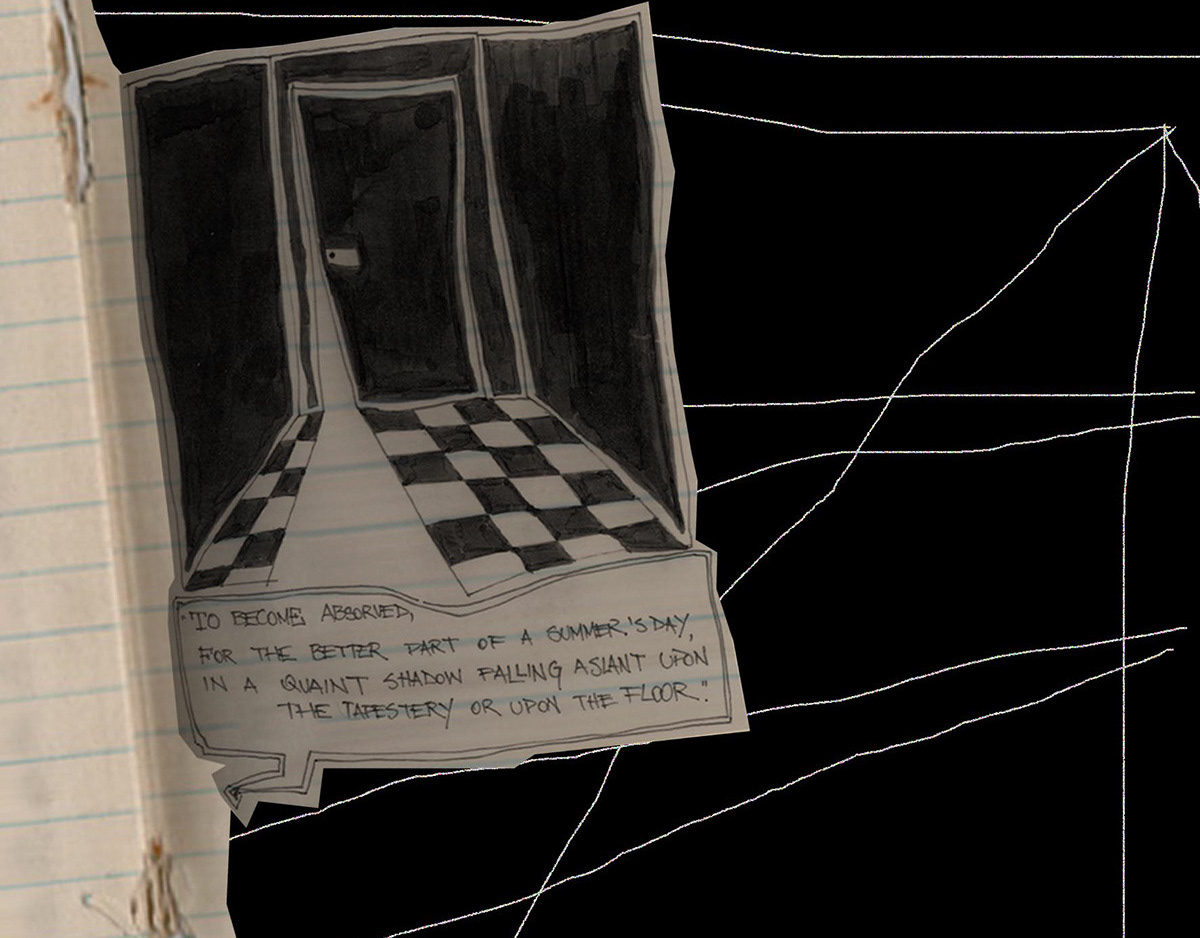 "TO BECOME ABSORVED,
FOR THE BETTER PART OF A SUMMER.'S DAY,
IN A QUAINT SHADOW FALLING ASLANT UPON
THE TAPESTERY OR UPON THE FLOOR."